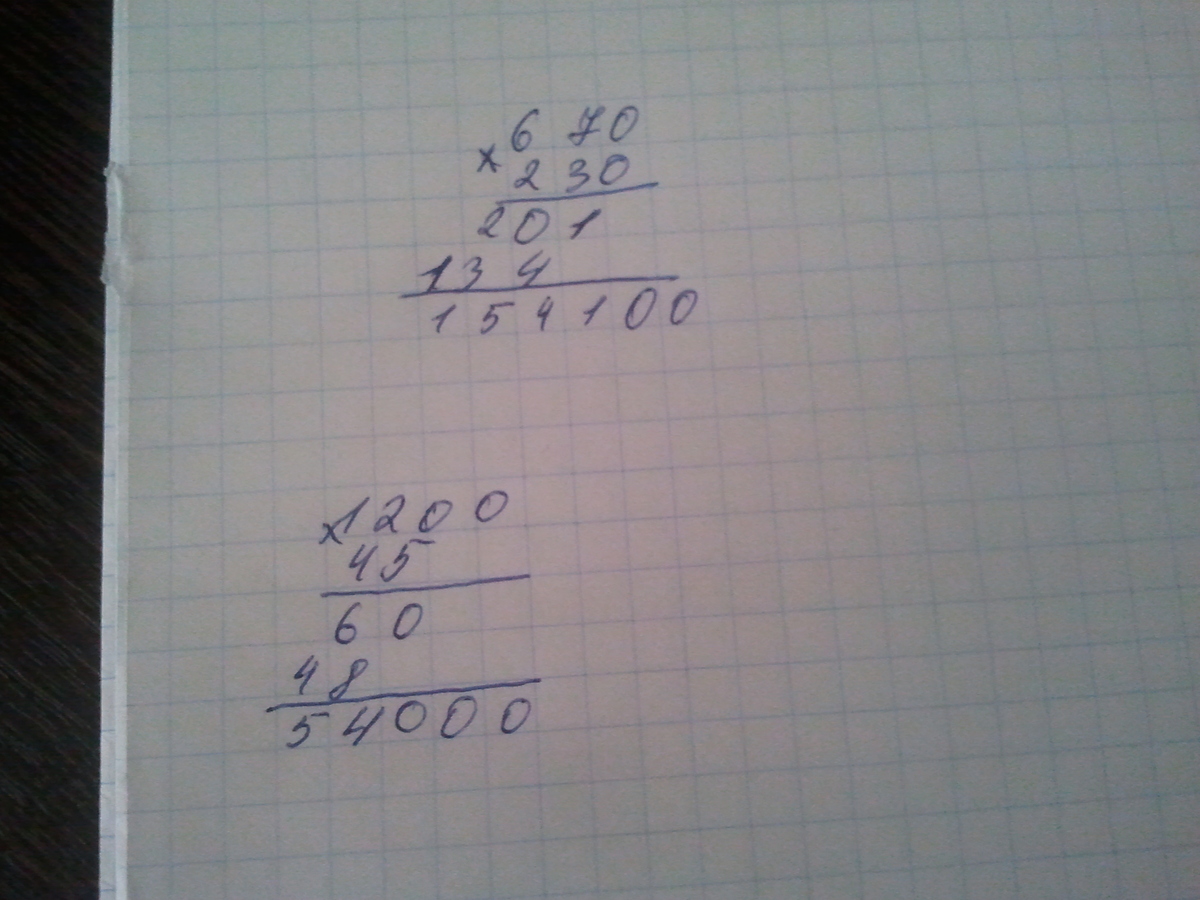 670
× 230
201
134
154100
× 1200
45
60
48
54000